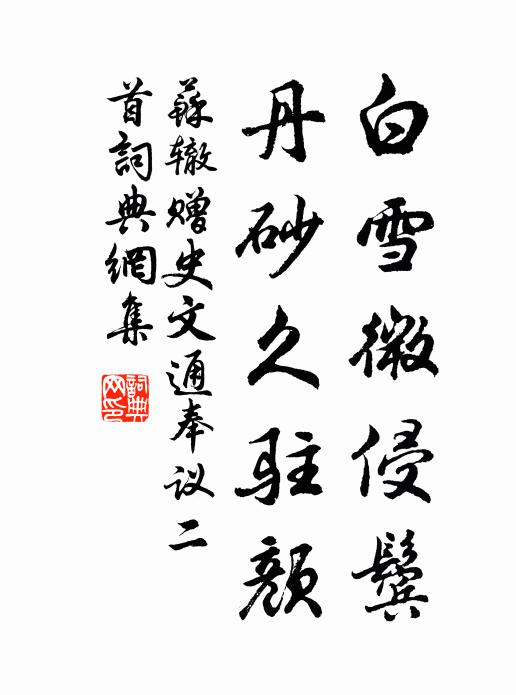 白雪微侵鬓
丹砂久驻颜
蘇辙赠史文通奉议二
首詞典網集
詞典网印